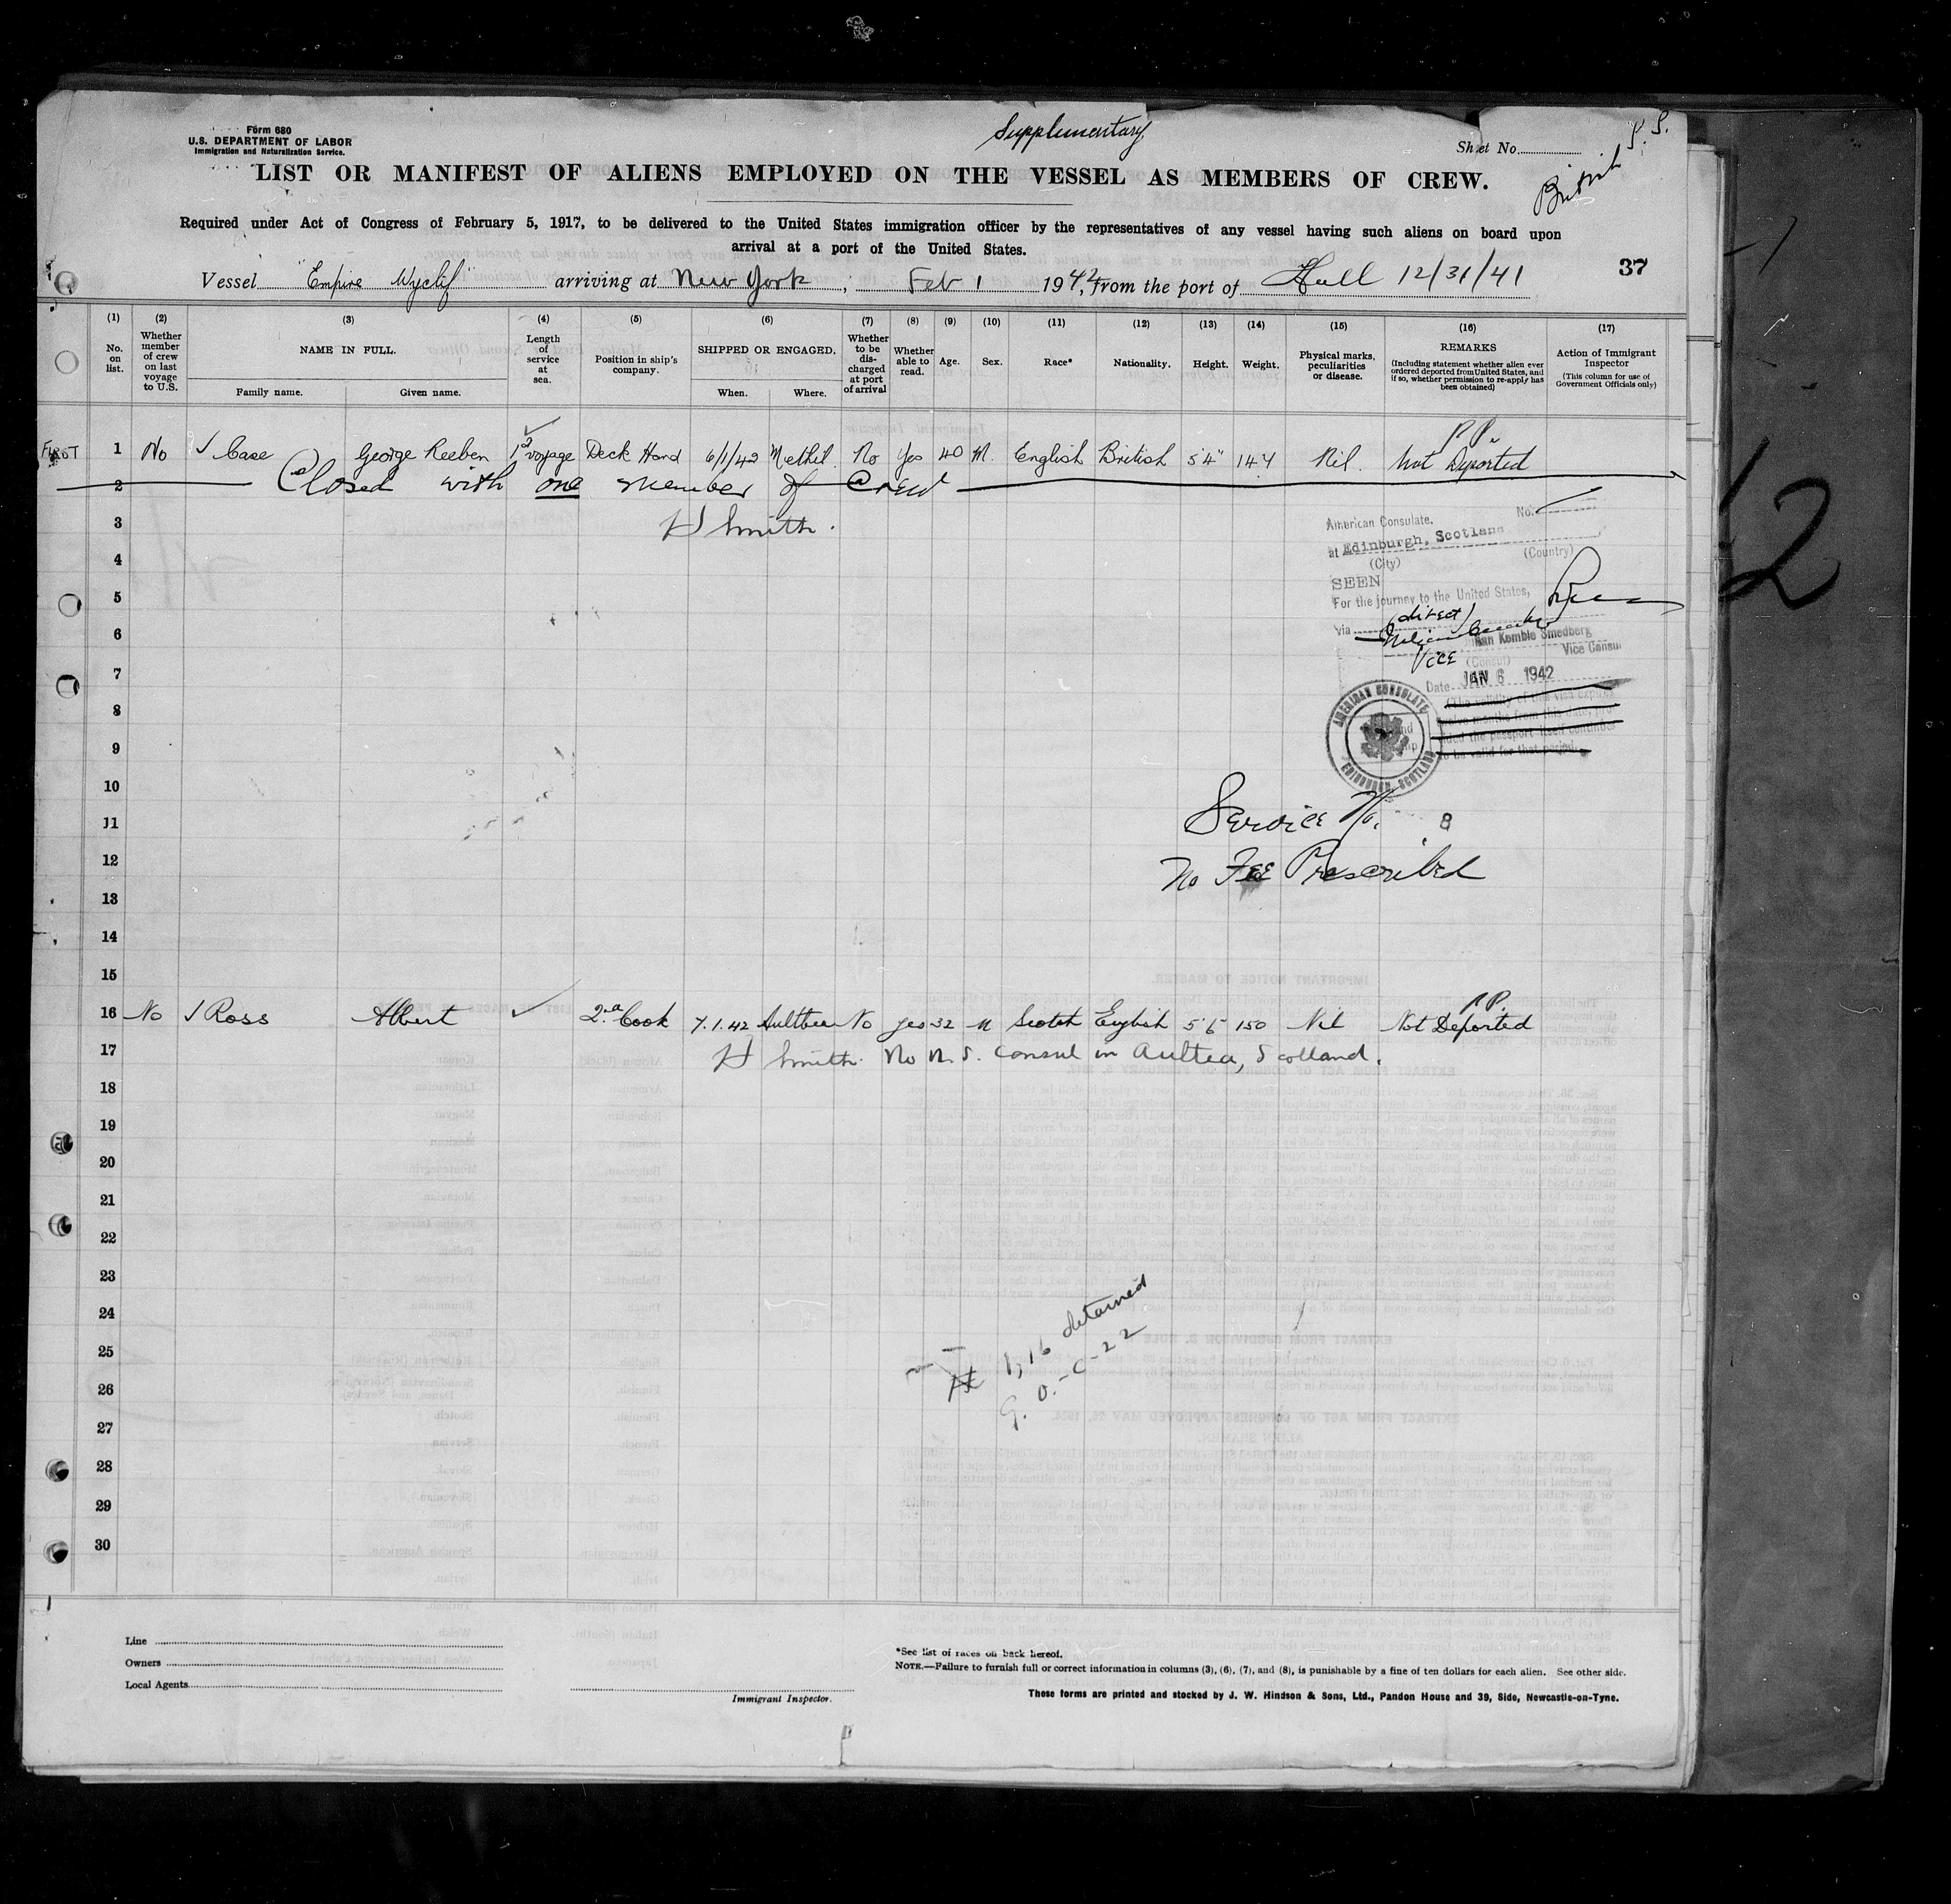 Form 680
U.S. DEPARTMENT OF LABOR
Immigration and Naturalization Service.
Supplimentary
Sheet No.
British
LIST OR MANIFEST OF ALIENS EMPLOYED ON THE VESSEL AS MEMBERS OF CREW.
Required under Act of Congress of February 5, 1917, to be delivered to the United States immigration officer by the representatives of any vessel having such aliens on board upon
arrival at a port of the United States.
37
Vessel "Empire Wyclif" arriving at New York, Feb 1 1942, from the port of Hull 12/31/41
(1) (2) (3) (4) (5) (6) (7) (8) (9) (10) (11) (12) (13) (14) (15) (16) (17)
No. on list.
Whether member of crew on last voyage to U.S.
NAME IN FULL.
Family name. Given name.
Length of service at sea.
Position in ship's company.
SHIPPED OR ENGAGED.
When. Where.
Whether to be discharged at port of arrival
Whether able to read.
Age.
Sex.
Race*
Nationality.
Height.
Weight.
Physical marks, peculiarities or disease.
REMARKS
(Including statement whether alien ever ordered deported from United States, and if so, whether permission to re-apply has been obtained)
Action of Immigrant Inspector
(This column for use of Government Officials only)
P.P.
FIRST 1 No Case George Reeben 1st voyage Deck Hand 6/1/42 Methil No Yes 40 M. English British 5'4" 144 Nil. Not Deported
2 Closed with one member of Crew
3 H Smith.
4
5
6
7
8
9
10
11
12
13
14
15
American Consulate. No.
at Edinburgh, Scotland
(City) (Country)
SEEN
For the journey to the United States,
via (direct)
Kemble Smedberg
Vice (Consul) Vice Consul
Date JAN 6 1942
(The validity of this visa expires
twelve months from this date, pro-
vided the passport itself continues
to be valid for that period.
AMERICAN CONSULATE
EDINBURGH, SCOTLAND
Service No. 8
No Fee Prescribed
P.P.
16 No Ross Albert 2nd Cook 7.1.42 Aultbea No yes 32 M Scotch English 5'6 150 Nil Not Deported
17 H Smith. No U.S. Consul in Aultea, Scotland.
18
19
20
21
22
23
24
25
26
27
28
29
30
1, 16 detained
G.O.-C-22
Line
Owners
Local Agents
Immigrant Inspector.
*See list of races on back hereof.
NOTE.—Failure to furnish full or correct information in columns (3), (6), (7), and (8), is punishable by a fine of ten dollars for each alien. See other side.
These forms are printed and stocked by J. W. Hindson & Sons, Ltd., Pandon House and 39, Side, Newcastle-on-Tyne.
12